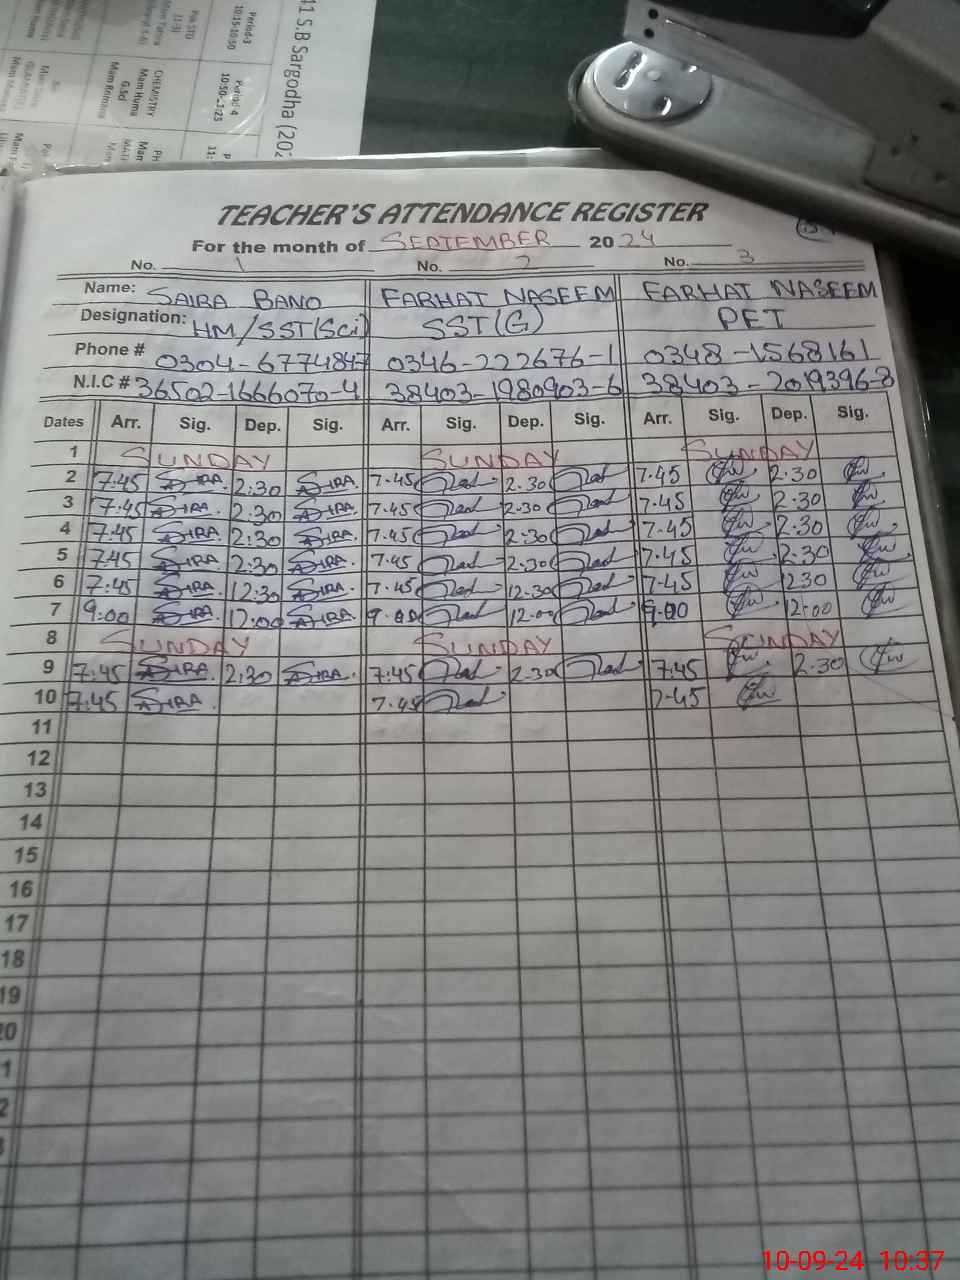 41 S.B Sargodha (202
Period-3
10:15-10:50
Period-4
CHEMISTRY
Mam Huma
G.Sci
Mam Romana
TEACHER'S ATTENDANCE REGISTER
For the month of SEPTEMBER 2024
No. 1 No. 2 No. 3
Name: SAIRA BANO FARHAT NASEEM FARHAT NASEEM
Designation: HM/SST(Sci) SST(G) PET
Phone # 0304-6774847 0346-222676-1 0348-1568161
N.I.C # 36502-1666070-4 38403-1980903-6 38403-2019396-8
Dates Arr. Sig. Dep. Sig. Arr. Sig. Dep. Sig. Arr. Sig. Dep. Sig.
1 SUNDAY SUNDAY SUNDAY
2 7:45 SAIRA 2:30 SAIRA 7.45 2.30 7.45 2.30
3 7:45 SAIRA 2:30 SAIRA 7.45 2.30 7.45 2:30
4 7:45 SAIRA 2:30 SAIRA 7.45 2:30 7.45 2:30
5 7:45 SAIRA 2:30 SAIRA 7.45 2:30 7.45 2:30
6 7:45 SAIRA 12:30 SAIRA 7.45 12.30 7.45 1230
7 9:00 SAIRA 12:00 SAIRA 9.00 12.00 9.00 12.00
8 SUNDAY SUNDAY SUNDAY
9 7:45 SAIRA 2:30 SAIRA 7:45 2.30 7:45 2.30
10 7:45 SAIRA 7.45 7.45
11
12
13
14
15
16
17
18
19
20
1
2
10-09-24 10:37